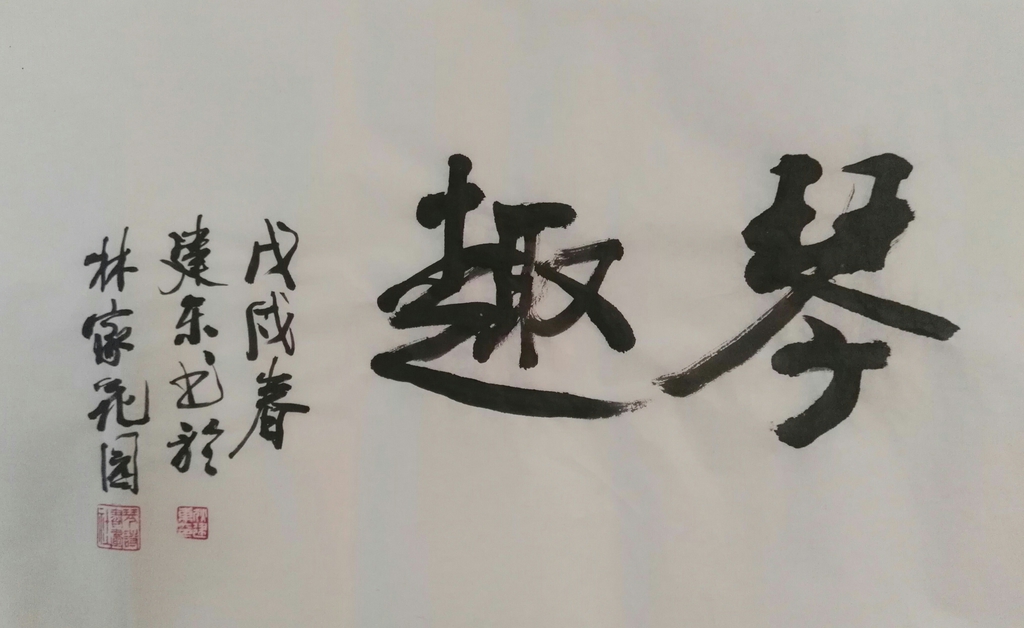 琴趣
戊戌春
建东书於
林家花园